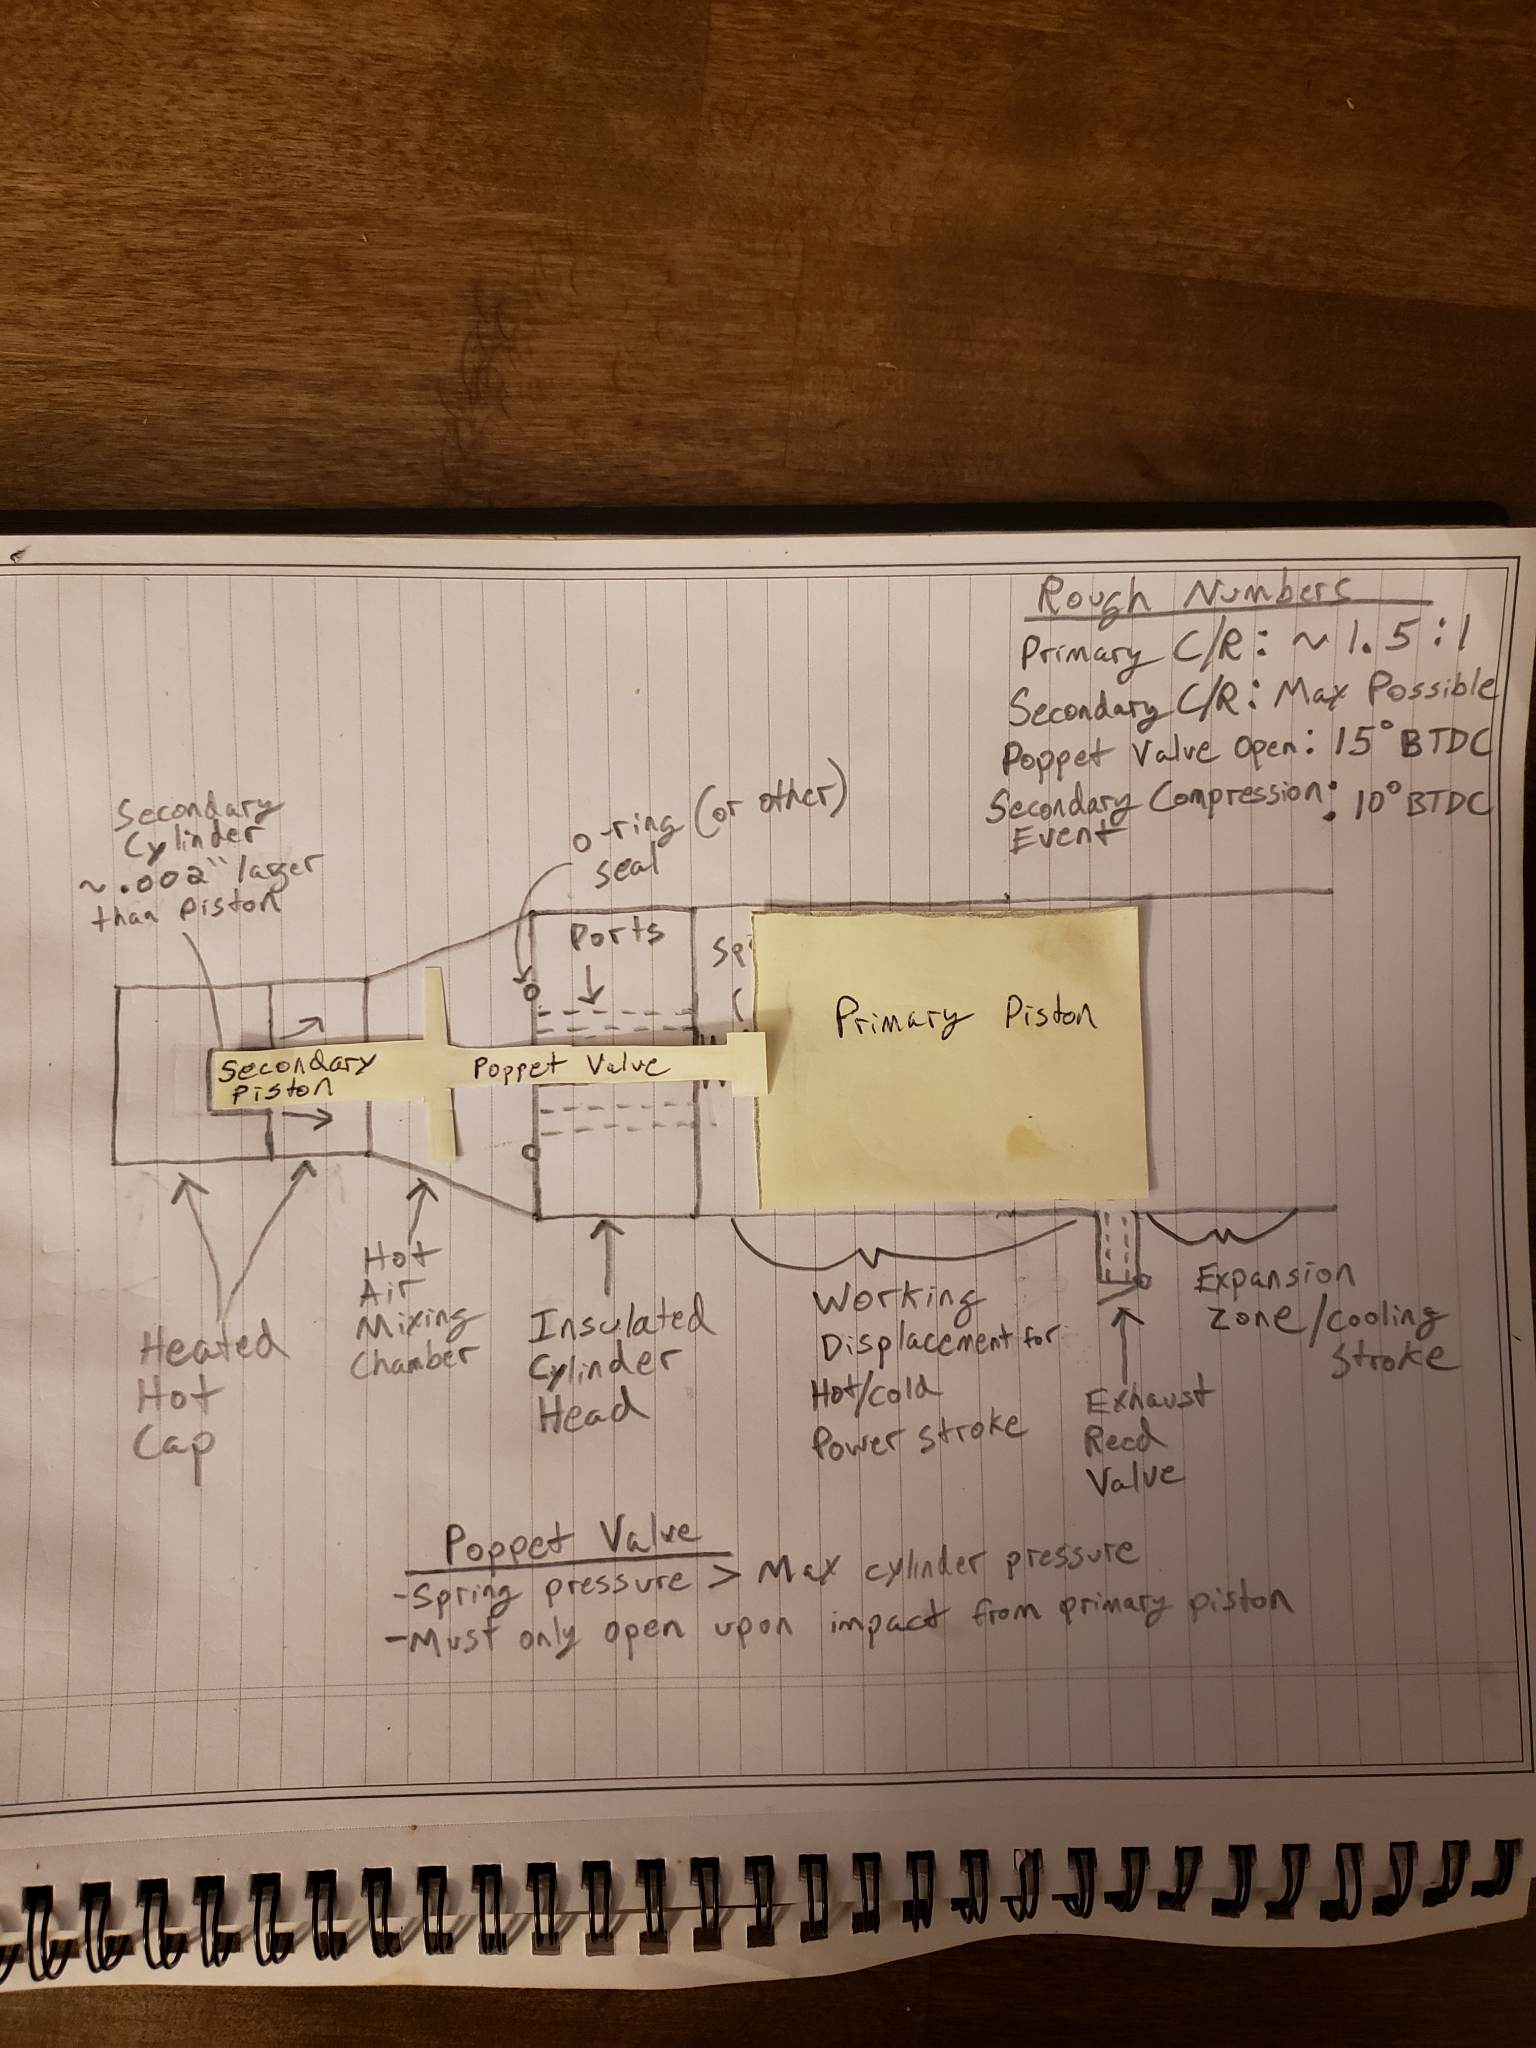 Rough Numbers
Primary C/R: ~ 1.5:1
Secondary C/R: Max Possible
Poppet Valve Open: 15° BTDC
Secondary Compression: 10° BTDC
Event
Secondary
Cylinder
~.002" larger
than piston
o-ring (or other)
seal
Ports
Primary Piston
Secondary
Piston
Poppet Valve
Heated
Hot
Cap
Hot
Air
Mixing
Chamber
Insulated
Cylinder
Head
Working
Displacement for
Hot/cold
Power stroke
Exhaust
Reed
Valve
Expansion
Zone/cooling
Stroke
Poppet Valve
-Spring pressure > Max cylinder pressure
-Must only open upon impact from primary piston